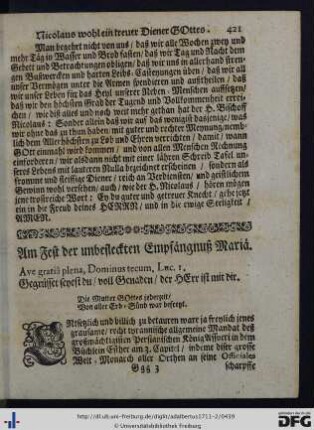 Nicolaus wohl ein treuer Diener GOttes. 421
Man begehrt nicht von uns / daß wir alle Wochen zwey und
mehr Täg in Wasser und Brod fasten / daß wir Tag und Nacht dem
Gebett und Betrachtungen obligen / daß wir uns in allerhand stren-
gen Bußwercken und harten Leibs-Casteyungen üben / daß wir all
unser Vermögen unter die Armen spendieren und austheilen / daß
wir unser Leben für das Heyl unserer Neben-Menschen auffsetzen /
daß wir den höchsten Grad der Tugend und Vollkommenheit errei-
chen / wie diß alles und noch weit mehr gethan hat der H. Bischoff
Nicolaus: Sonder allein daß wir auf das wenigist dasjenige / was
wir ohne das zu thun haben mit guter und rechter Meynung, nemb-
lich dem Allerhöchsten zu Lob und Ehren verrichten / damit / wann
GOtt einmahl wird kommen / und von allen Menschen Rechnung
einforderen / wir alsdann nicht mit einer lähren Schreib Tafel un-
seres Lebens mit lauteren Nulla bezeichnet erscheinen / sondern als
fromme und fleissige Diener / reich an Verdiensten / und geistlichem
Gewinn wohl versehen / auch / wie der H. Nicolaus / hören mögen
jene trostreiche Wort: Ey du guter und getreuer Knecht / gehe jetzt
ein in die Freud deines HERRN / und in die ewige Seeligkeit /
AMEN.
Am Fest der unbefleckten Empfängnuß Mariä.
Ave gratiâ plena, Dominus tecum, Luc. 1.
Gegrüsset seyest du / voll Genaden / der HErr ist mit dir.
Die Mutter GOttes jederzeit /
Von aller Erb-Sünd war befreyt.
Entsetzlich und billich zu betauren ware ja freylich jenes
grausame / recht tyrannische allgemeine Mandat deß
großmächtigisten Persianischen König Assueri in dem
Büchlein Esther am 3. Capitel / indeme diser grosse
Welt-Monarch aller Orthen an seine Officiales
Ggg 3 scharpffe
http://dl.ub.uni-freiburg.de/diglit/adalbertus1711-2/0439
© Universitätsbibliothek Freiburg
gefördert durch die
DFG